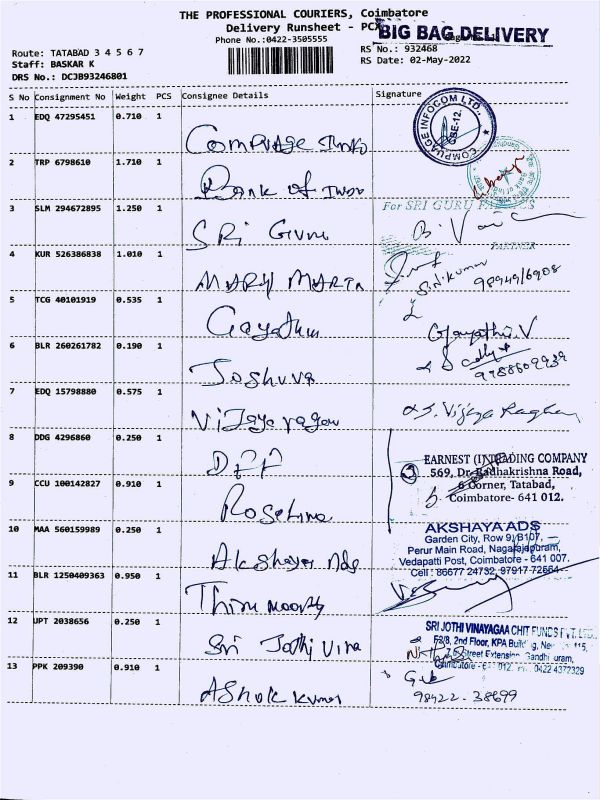 THE PROFESSIONAL COURIERS, Coimbatore
Delivery Runsheet - PCX
BIG BAG DELIVERY
Phone No.:0422-3505555
Route: TATABAD 3 4 5 6 7
RS No.: 932468
Staff: BASKAR K
RS Date: 02-May-2022
DRS No.: DCJB93246801
S No Consignment No Weight PCS Consignee Details Signature
1 EDQ 47295451 0.710 1
COMPUAGE INFOCOM LTD.
GSE-12.
Compuage Info
2 TRP 6798610 1.710 1
Bank of
3 SLM 294672895 1.250 1
For SRI GURU
SRi Guru
PARTNER
4 KUR 526386838 1.010 1
MARY MARIA
S.N.kumar
98949/6908
5 TCG 40101919 0.535 1
Gayathri
Gayathri.V
6 BLR 260261782 0.190 1
Joshuva
9788609939
7 EDQ 15798880 0.575 1
Vijaya ragav
S. Vijaya Raghav
8 DDG 4296860 0.250 1
EARNEST TRADING COMPANY
569, Dr. Radhakrishna Road,
6 Corner, Tatabad,
Coimbatore- 641 012.
9 CCU 100142827 0.910 1
Roselina
10 MAA 560159989 0.250 1
AKSHAYA ADS
Garden City, Row 9, B107,
Perur Main Road, Nagarajapuram,
Vedapatti Post, Coimbatore - 641 007.
Cell : 86677 24732, 97917 72664
Akshaya Ads
11 BLR 1250409363 0.950 1
Thiru moorthy
12 UPT 2038656 0.250 1
SRI JOTHI VINAYAGAA CHIT FUNDS PVT. LTD.,
2nd Floor, KPA Building,
Street Extension, Gandhipuram,
Coimbatore - 641 012. 0422 4372329
Sri Jothi Vina
13 PPK 209390 0.910 1
Ashok kumar
98422-38699